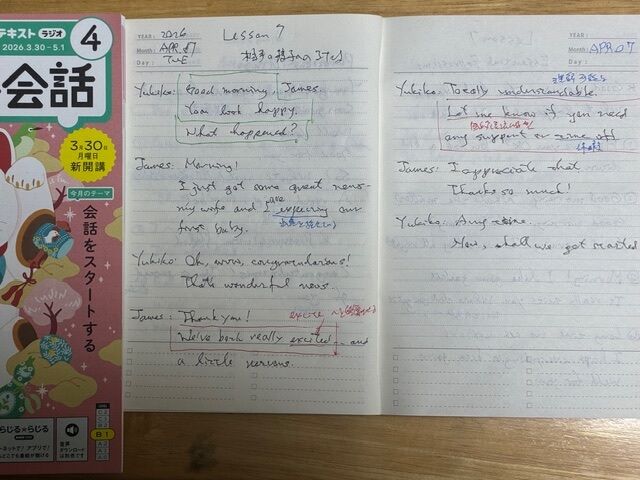 テキスト ラジオ
2026.3.30-5.1
4
会話
3月30日
月曜日
新開講
今月のテーマ
会話をスタートする
らじる★らじる
音声
ダウンロード
B1
YEAR: 2026
Month: APR. 07
Day: TUE
Lesson 7
相手の様子への
Yukiko: Good morning, James.
You look happy.
What happened?
James: Morning!
I just got some great news-
my wife and I are expecing our
first baby.
Yukiko: Oh, wow, congratulations!
That's wonderful news.
James: Thank you!
excite
We've both really excited and
a little nervous.
YEAR:
Month: APR 07
Day:
Yukiko: Totally understandable.
Let me know if you need
any support or time off
James: I appreciate that
Thanks so much!
Yukiko: Any time.
Now, shall we get started